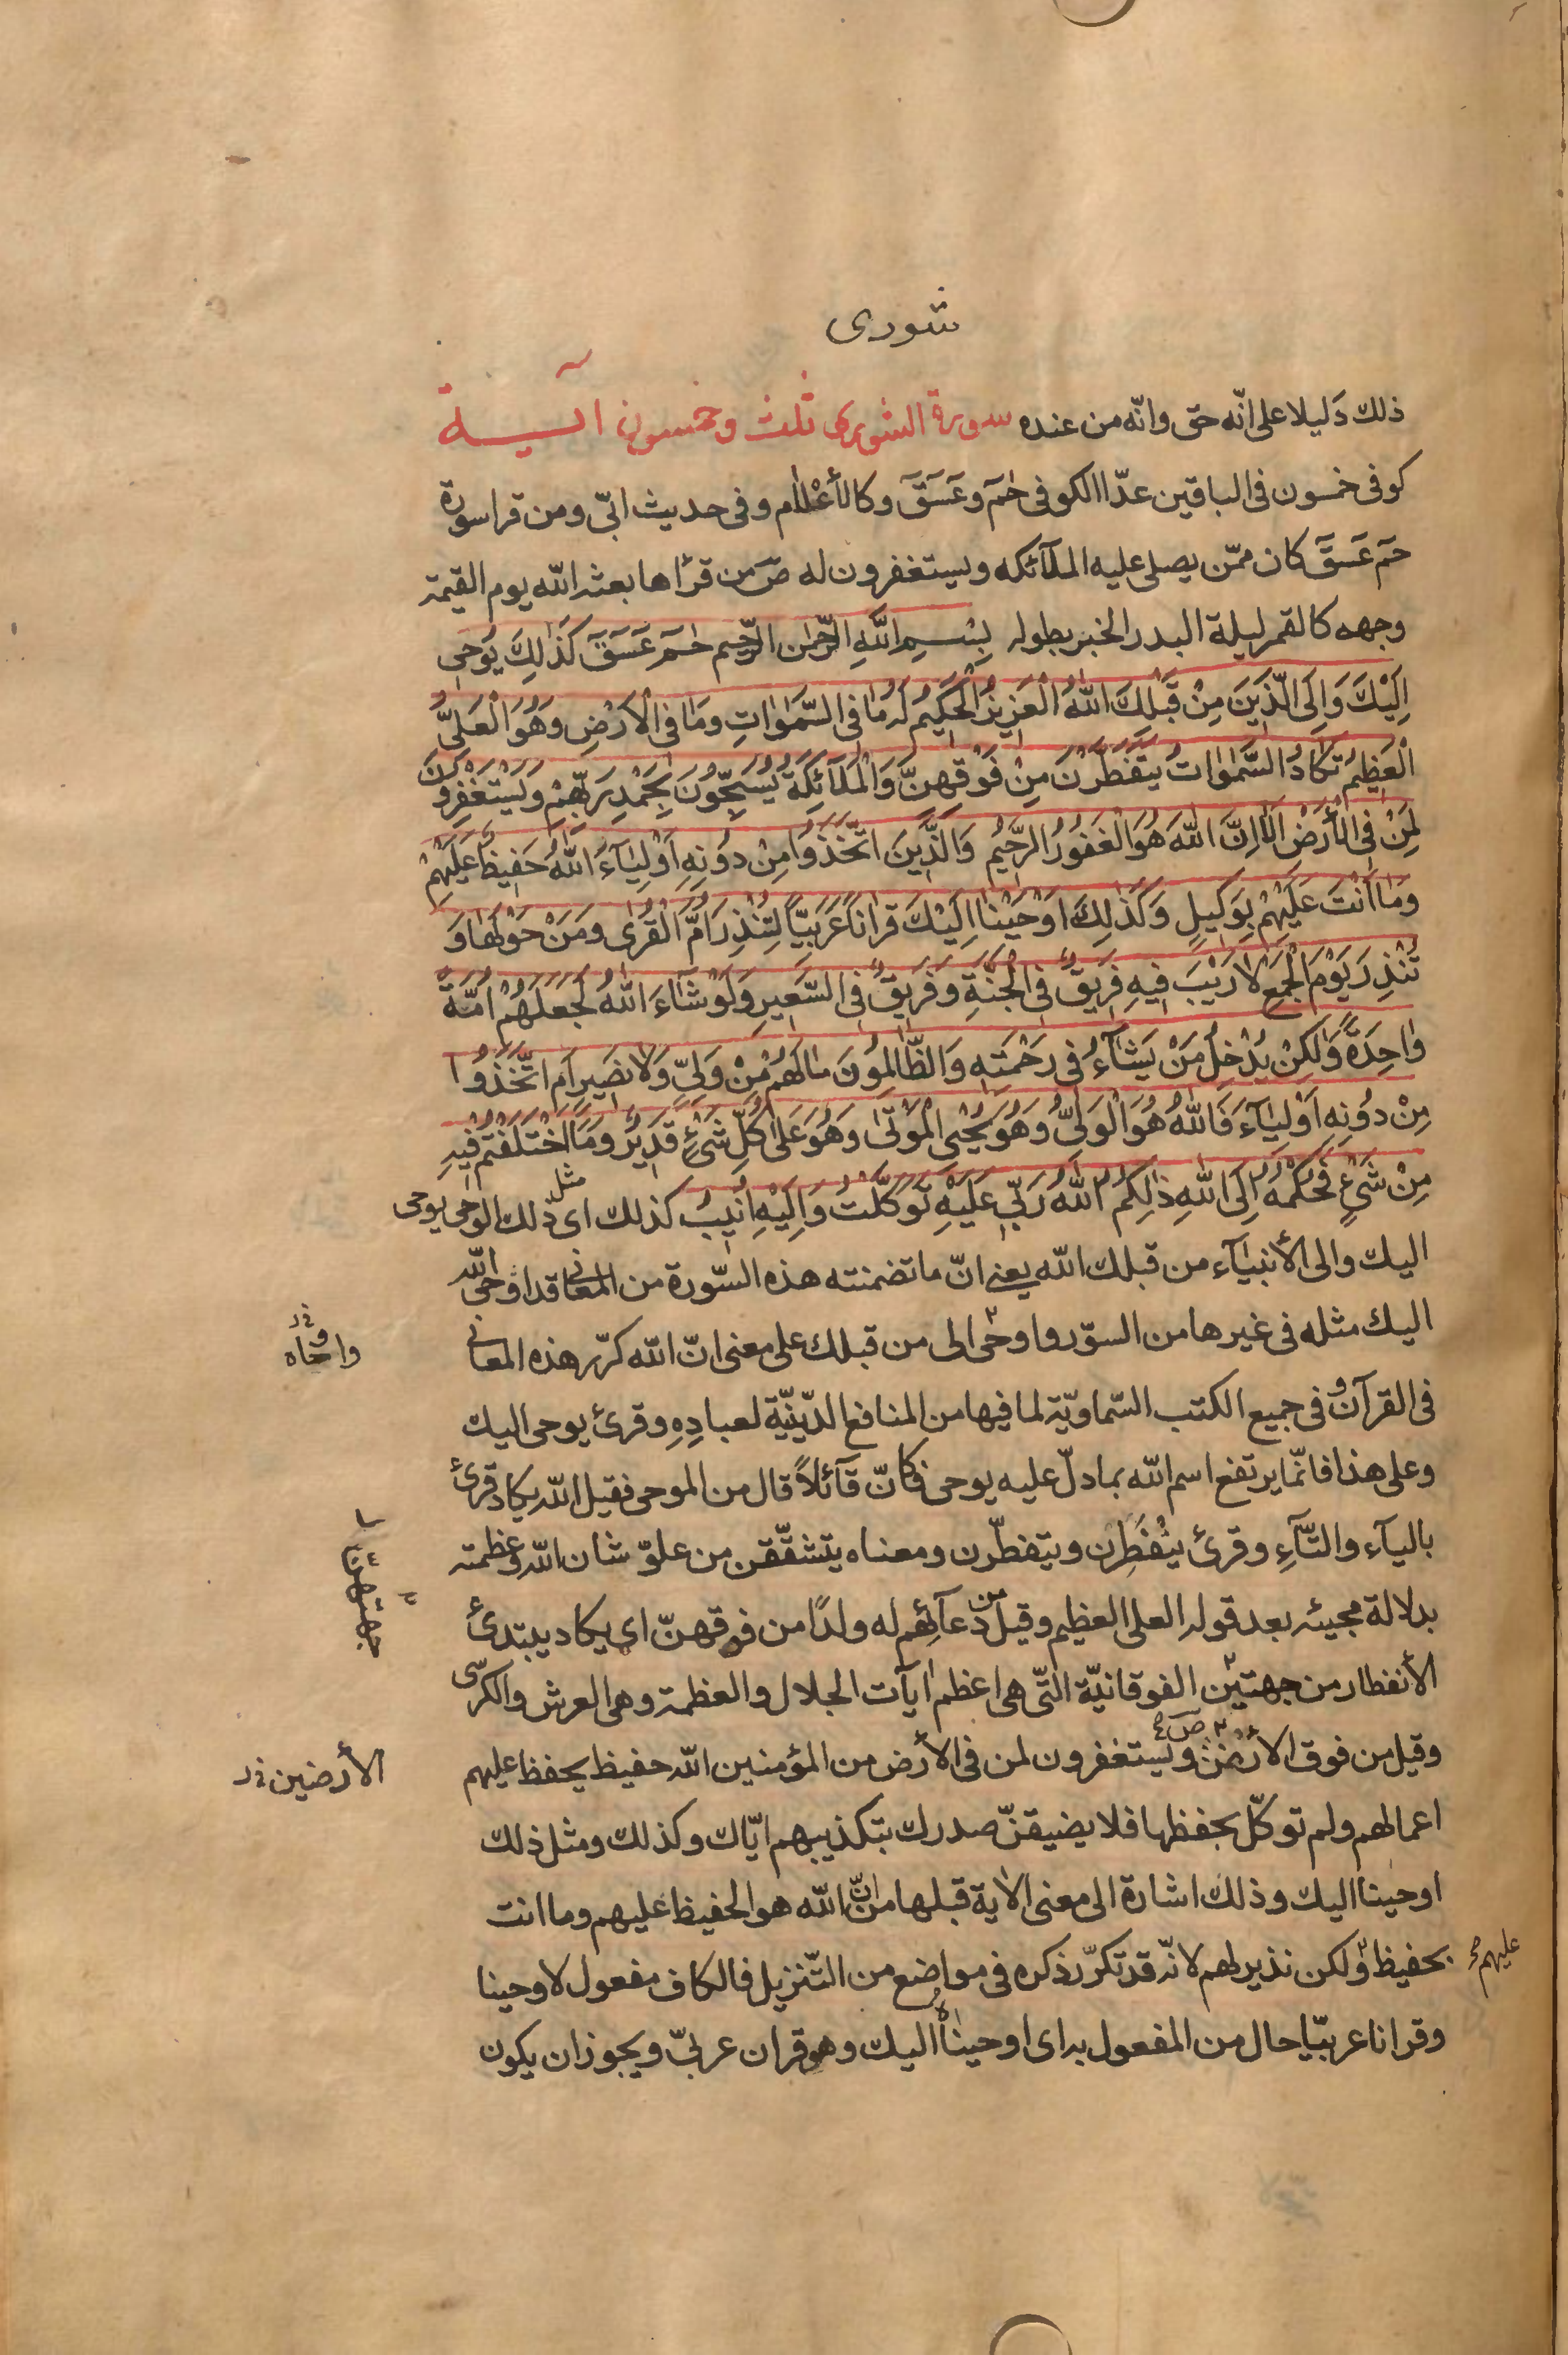 شورى
ذلك دَليلا على انّه حق وانّه من عنده سورة الشورى ثلث وخمسون آية
كوفى خمسون فى الباقين عدّا الكوفى حٰمٓ وعٓسٓقٓ وكالأعْلٰام وفى حديث ابىّ ومن قرا سورة
حمٓ عٓسٓقٓ كان ممّن يصلى عليه الملآئكه ويستغفرون له صٓ من قرٔاها بعثه الله يوم القيمة
وجهه كالقمر ليلة البدر الخبر بطوله بِسْمِ اللّٰهِ الرَّحْمٰنِ الرَّحٖيمِ حٰمٓ عٓسٓقٓ كَذٰلِكَ يُوحٖى
اِلَيْكَ وَاِلَى الَّذٖينَ مِنْ قَبْلِكَ اللّٰهُ الْعَزٖيزُ الْحَكٖيمُ لَهُ مٰا فِى السَّمٰوٰاتِ وَمٰا فِى الْاَرْضِ وَهُوَ الْعَلِىُّ
الْعَظٖيمُ تَكٰادُ السَّمٰوٰاتُ يَتَفَطَّرْنَ مِنْ فَوْقِهِنَّ وَالْمَلٰٓائِكَةُ يُسَبِّحُونَ بِحَمْدِ رَبِّهِمْ وَيَسْتَغْفِرُونَ
لِمَنْ فِى الْأَرْضِ اَلٰا اِنَّ اللّٰهَ هُوَ الْغَفُورُ الرَّحٖيمُ وَالَّذٖينَ اتَّخَذُوا مِنْ دُونِهٖ اَوْلِيٰآءَ اللّٰهُ حَفٖيظٌ عَلَيْهِمْ
وَمٰا اَنْتَ عَلَيْهِمْ بِوَكٖيلٍ وَكَذٰلِكَ اَوْحَيْنٰا اِلَيْكَ قُرْاٰناً عَرَبِيّاً لِتُنْذِرَ اُمَّ الْقُرٰى وَمَنْ حَوْلَهٰا وَ
تُنْذِرَ يَوْمَ الْجَمْعِ لٰا رَيْبَ فٖيهِ فَرٖيقٌ فِى الْجَنَّةِ وَفَرٖيقٌ فِى السَّعٖيرِ وَلَوْ شٰآءَ اللّٰهُ لَجَعَلَهُمْ اُمَّةً
وٰاحِدَةً وَلٰكِنْ يُدْخِلُ مَنْ يَشٰآءُ فٖى رَحْمَتِهٖ وَالظّٰالِمُونَ مٰا لَهُمْ مِنْ وَلِىٍّ وَلٰا نَصٖيرٍ اَمِ اتَّخَذُوا
مِنْ دُونِهٖ اَوْلِيٰآءَ فَاللّٰهُ هُوَ الْوَلِىُّ وَهُوَ يُحْيِى الْمَوْتٰى وَهُوَ عَلٰى كُلِّ شَىْءٍ قَدٖيرٌ وَمَا اخْتَلَفْتُمْ فٖيهِ
مِنْ شَىْءٍ فَحُكْمُهُ اِلَى اللّٰهِ ذٰلِكُمُ اللّٰهُ رَبّٖى عَلَيْهِ تَوَكَّلْتُ وَاِلَيْهِ اُنٖيبُ كذلك اى مثل ذلك الوحى يوحى
اليك والى الأنبيٰآء من قبلك الله يعنى انّ ما تضمنته هذه السّورة من المعانى قد اوحى الله
اليك مثله فى غيرها من السوّر واوحى الى من قبلك على معنى انّ الله كرّر هذه المعانى
واوحاه خ‍ر
فى القرآن وفى جميع الكتب السّماويّة لما فيها من المنافع الدّينيّة لعبادِهِ وقرئ يوحى اليك
وعلى هذا فانّما يرتفع اسم الله بما دلّ عليه يوحى فكانّ قآئلاً قال من الموحى فقيل الله يكاد قرئ
باليآء والتّآءِ وقرئ ينْفَطِرْن ويتفطّرن ومعناه يتشقّقن من علوّ شان الله وعظمته
بدلالة مجيئه بعد قوله العلى العظيم وقيل من دعآئهم له ولدًا من فوقهنّ اى يكاد يبتدئ
الأنفطار من جهتين الفوقانيّة التّى هى اعظم اٰيآت الجلال والعظمة وهى العرش والكرسّى
جهتهنّ
وقيل من فوق الأرض ويستغفرون لمن فى الأرض من المؤمنين الله حفيظ يحفظ عليهم
الأرضين خ‍ر
اعمالهم ولم توكّل بحفظها فلا يضيقنّ صدرك بتكذيبهم ايّاك وكذلك ومثل ذلك
اوحينا اليك وذلك اشارة الى معنى الاٰية قبلها من انّ الله هو الحفيظ عليهم وما انت
عليهم
بحفيظ ولكن نذير لهم لانّه قد تكرّر ذكره فى مواضع من التّنزيل فالكاف مفعول لاوحينا
وقرانا عربيّا حال من المفعول به اى اوحيناه اليك وهو قران عربىّ ويجوز ان يكون